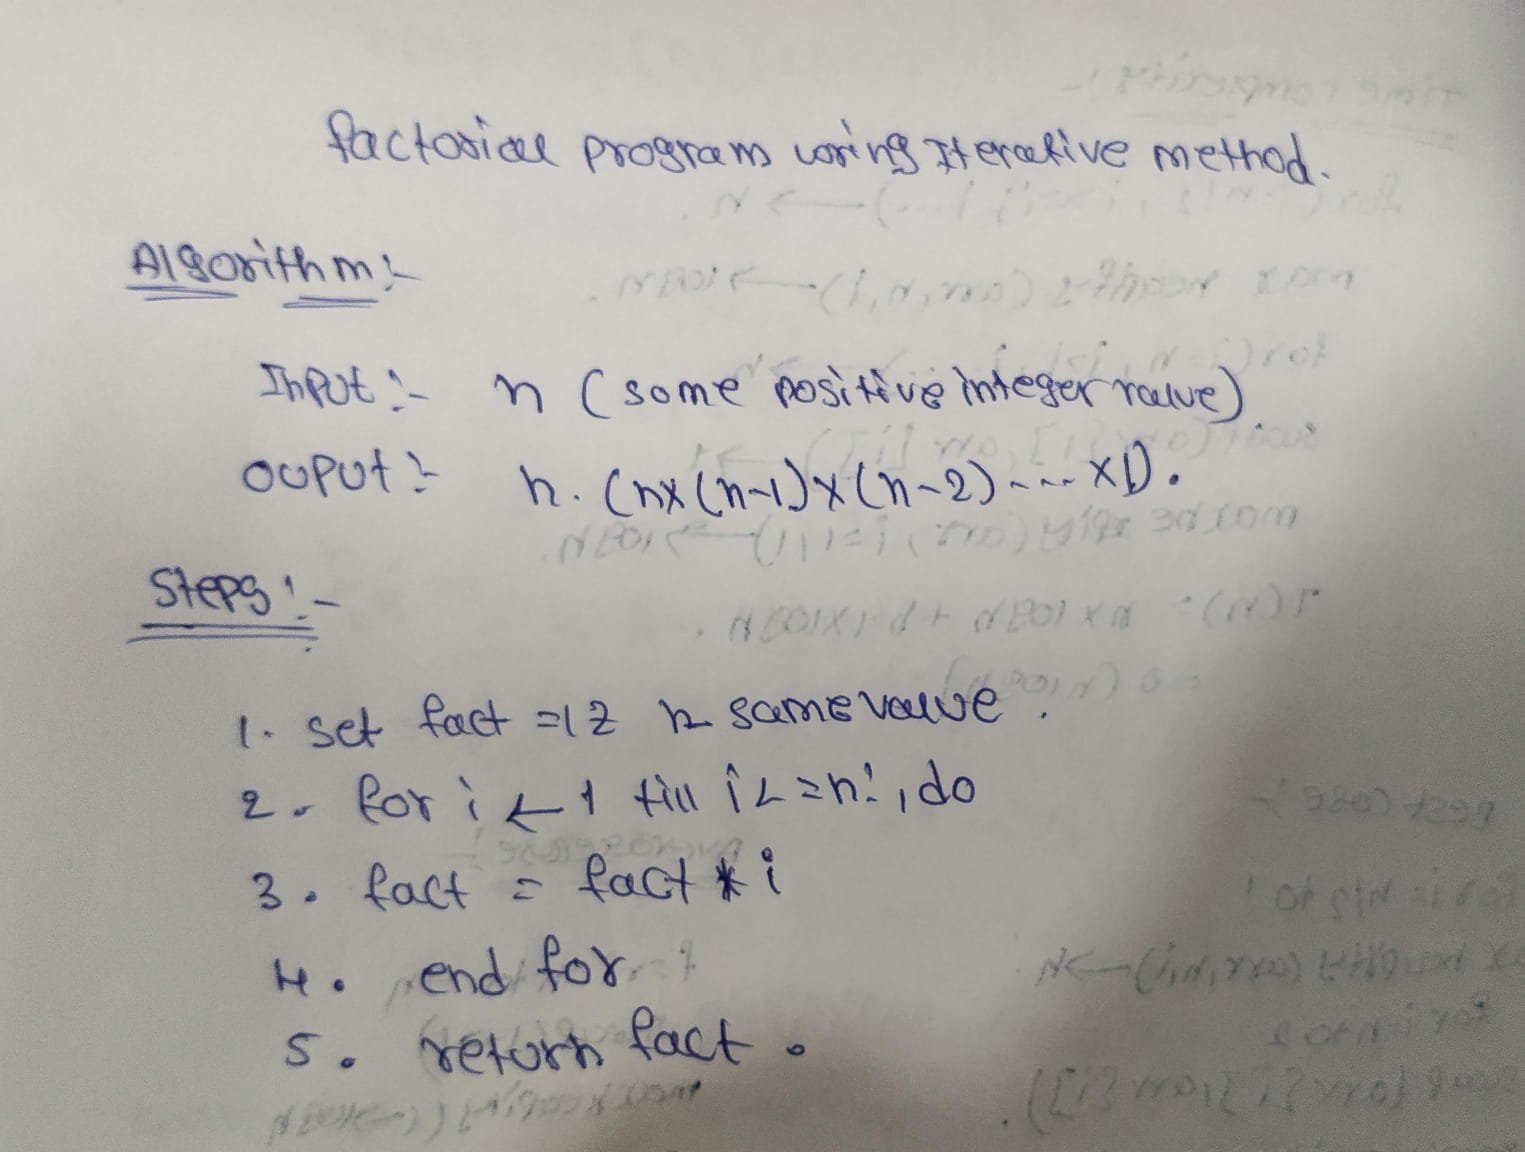 factorial program using Iterative method.
Algorithm:-
Input:- n (some positive integer value)
Ouput:- n. (nx(n-1)x(n-2)---- x1).
Steps:-
1. set fact =1 & n some value.
2. for i ← 1 till i <=n!, do
3. fact = fact * i
4. end for
5. return fact.